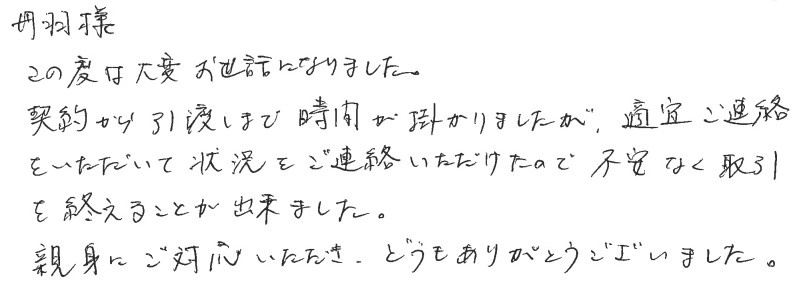 丹羽様
この度は大変お世話になりました。
契約から引渡しまで時間が掛かりましたが、適宜ご連絡
をいただいて状況をご連絡いただけたので不安なく取引
を終えることが出来ました。
親身にご対応いただき、どうもありがとうございました。